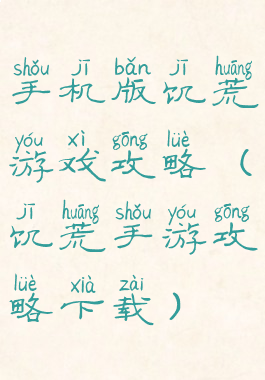 shǒu jī bǎn jī huāng
手机版饥荒
yóu xì gōng lüè
游戏攻略（
jī huāng shǒu yóu gōng
饥荒手游攻
lüè xià zài
略下载）